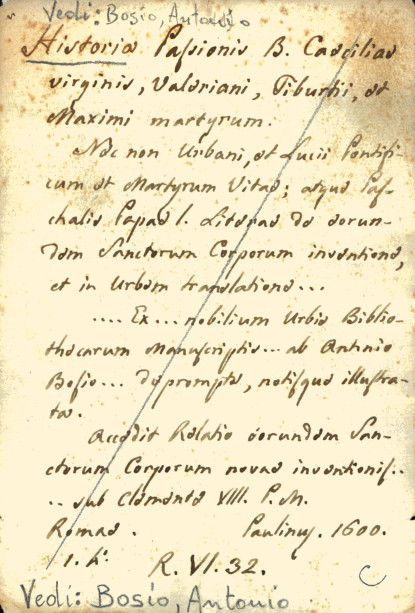 Vedi: Bosio, Antonio
Historia Paſsionis B. Caeciliae
virginis, Valeriani, Tiburtii, et
Maximi martyrum.
Nec non Urbani, et Lucii Pontifi-
cum et Martyrum Vitae; atque Paſ-
chalis Papae I. Literae de eorun-
dem Sanctorum Corporum inventione,
et in Urbem translatione...
.... Ex... nobilium Urbis Biblio-
thecarum Manuscriptis... ab Antonio
Boſio... deprompta, notiſque illuſtra-
ta.
Accedit Relatio eorundem San-
ctorum Corporum novae inventioniſ..
.. sub Clemente VIII. P. M.
Romae. Paulinus. 1600.
R. VI. 32.
C
Vedi: Bosio, Antonio